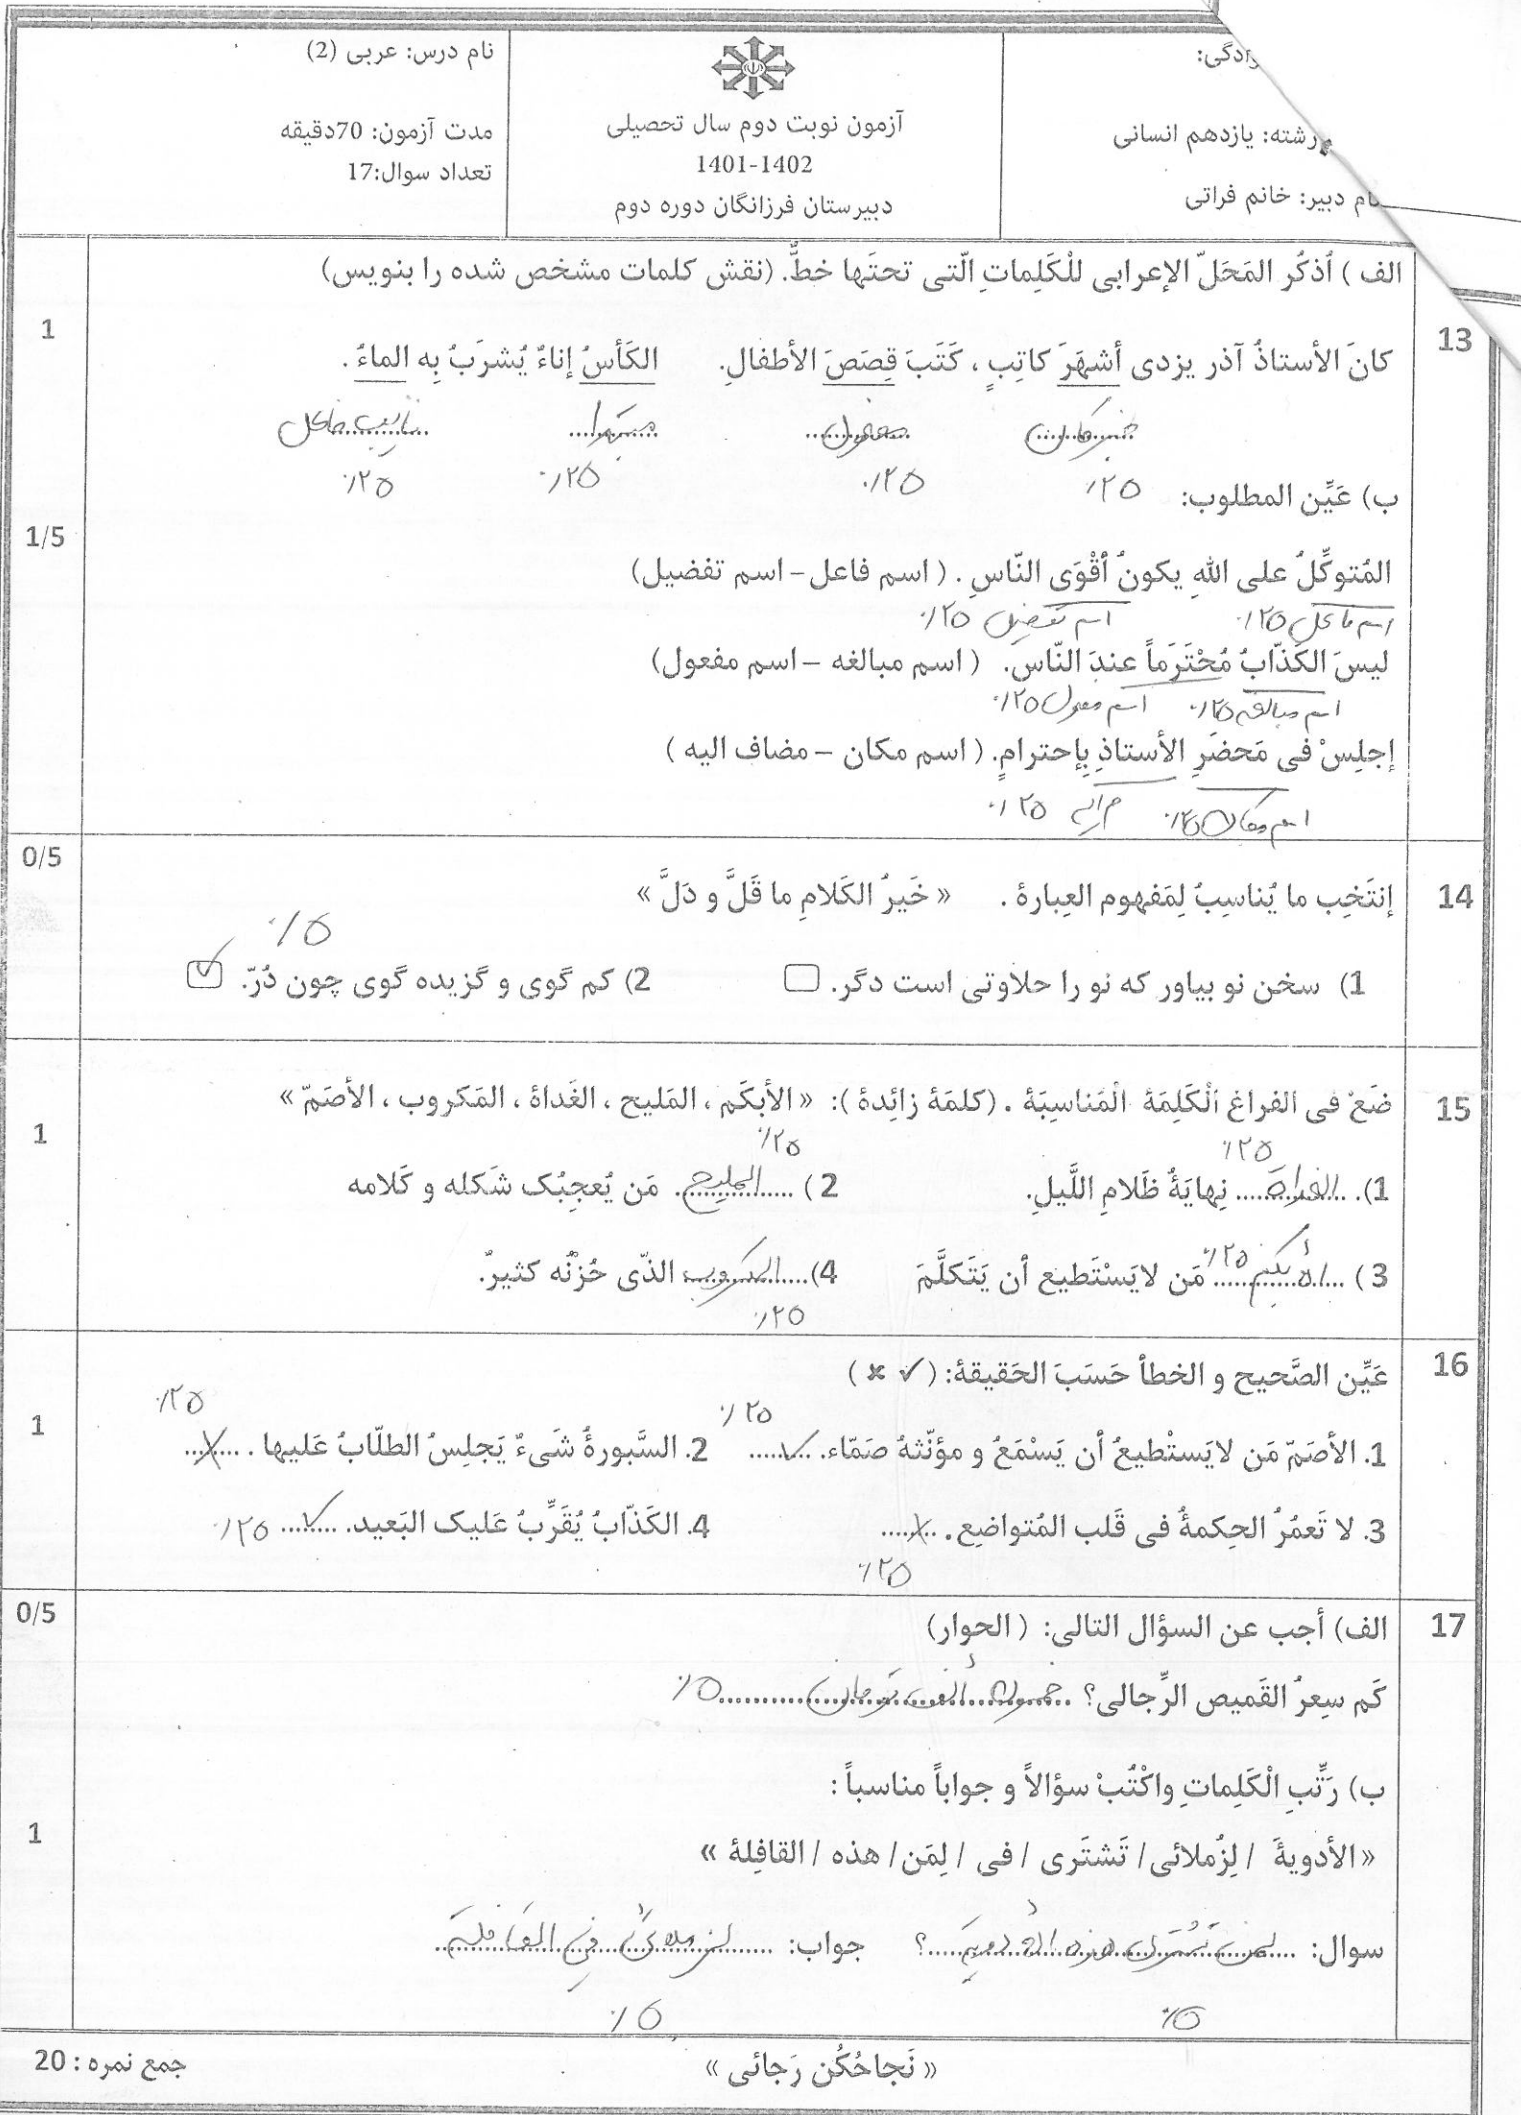 رشته: یازدهم انسانی
نام دبیر: خانم فراتی
آزمون نوبت دوم سال تحصیلی
1401-1402
دبیرستان فرزانگان دوره دوم
نام درس: عربی (2)
مدت آزمون: 70دقیقه
تعداد سوال:17
13
الف ) اُذکُر المَحَلّ الإعرابی للْکَلِماتِ الّتی تحتَها خطٌّ. (نقش کلمات مشخص شده را بنویس)
1
کانَ الأستاذُ آذر یزدی أشهَرَ کاتِبٍ ، کَتَبَ قِصَصَ الأطفالِ. الکَأسُ إناءٌ یُشرَبُ بِه الماءُ .
خبر کان مفعول مبتدا نایب فاعل
۰/۲۵ ۰/۲۵ ۰/۲۵ ۰/۲۵
ب) عَیِّن المطلوب:
1/5
المُتوکِّلُ علی اللهِ یکونُ أقْوَی النّاسِ . ( اسم فاعل- اسم تفضیل)
اسم فاعل ۰/۲۵ اسم تفضیل ۰/۲۵
لیسَ الکَذّابُ مُحْتَرَماً عندَ النّاسَ. ( اسم مبالغه – اسم مفعول)
اسم مبالغه ۰/۲۵ اسم مفعول ۰/۲۵
إجلِسْ فی مَحضَرِ الأستاذِ بِإحترامٍ. ( اسم مکان – مضاف الیه )
اسم مکان ۰/۲۵ م الیه ۰/۲۵
0/5
14
إنتَخِب ما یُناسِبُ لِمَفهوم العِبارة . « خَیرُ الکَلامِ ما قَلَّ و دَلَّ »
۰/۵
1) سخن نو بیاور که نو را حلاوتی است دگر. 2) کم گوی و گزیده گوی چون دُرّ. ✓
15
ضَعْ فی الفراغ الْکَلِمَةَ الْمَناسِبَةَ . (کلمَة زائِدة ): « الأبکَم ، المَلیح ، الغَداة ، المَکروب ، الأصَمّ »
1
۰/۲۵ ۰/۲۵
1). الغداة نِهایَةُ ظَلامِ اللَّیلِ. 2 ) الملیح. مَن یُعجِبُک شَکله و کَلامه
3 ) الأبکم ۰/۲۵ مَن لایَسْتَطیع أن یَتَکلَّمَ 4) المکروب الذّی حُزْنُه کثیرٌ.
۰/۲۵
16
عَیِّن الصَّحیح و الخطأ حَسَبَ الحَقیقة: ( ✓ ✗ )
1
۰/۲۵ ۰/۲۵
1. الأصَمّ مَن لایَستْطیعُ أن یَسْمَعُ و مؤنّثهُ صَمّاء. ✓ 2. السَّبورةُ شَیءٌ یَجلِسُ الطلّابُ عَلیها . ✗
3. لا تَعمُرُ الحِکمةُ فی قَلب المُتواضِع . ✗ 4. الکَذّابُ یُقَرِّبُ عَلیک البَعید. ✓ ۰/۲۵
۰/۲۵
0/5
17
الف) أجب عن السؤال التالی: ( الحوار)
کَم سِعرُ القَمیص الرِّجالی؟ خمسون ألف تومان ۰/۵
ب) رَتِّبِ الْکَلِماتِ واکْتُبْ سؤالاً و جواباً مناسباً :
1
« الأدویةَ / لِزُملائی/ تَشتَری / فی / لِمَن/ هذه / القافِلة »
سوال: لمن تشتری هذه الأدویة ؟ جواب: لزملائی فی القافلة
۰/۵ ۰/۵
« نَجاحُکُن رَجائی »
جمع نمره : 20